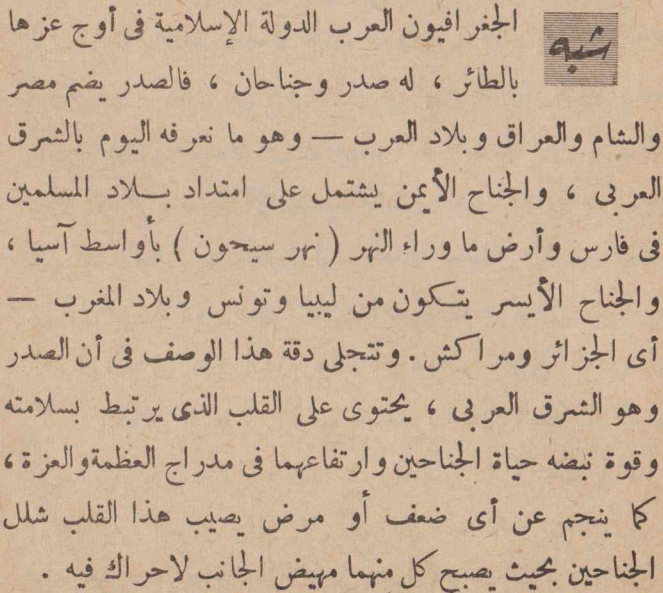 شبه الجغرافيون العرب الدولة الإسلامية فى أوج عزها
بالطائر ، له صدر وجناحان ، فالصدر يضم مصر
والشام والعراق وبلاد العرب — وهو ما نعرفه اليوم بالشرق
العربى ، والجناح الأيمن يشتمل على امتداد بلاد المسلمين
فى فارس وأرض ما وراء النهر ( نهر سيحون ) بأواسط آسيا ،
والجناح الأيسر يتكون من ليبيا وتونس وبلاد المغرب —
أى الجزائر ومراكش . وتتجلى دقة هذا الوصف فى أن الصدر
وهو الشرق العربى ، يحتوى على القلب الذى يرتبط بسلامته
وقوة نبضه حياة الجناحين وارتفاعهما فى مدراج العظمة والعزة ،
كما ينجم عن أى ضعف أو مرض يصيب هذا القلب شلل
الجناحين بحيث يصبح كل منهما مهيض الجانب لاحراك فيه .